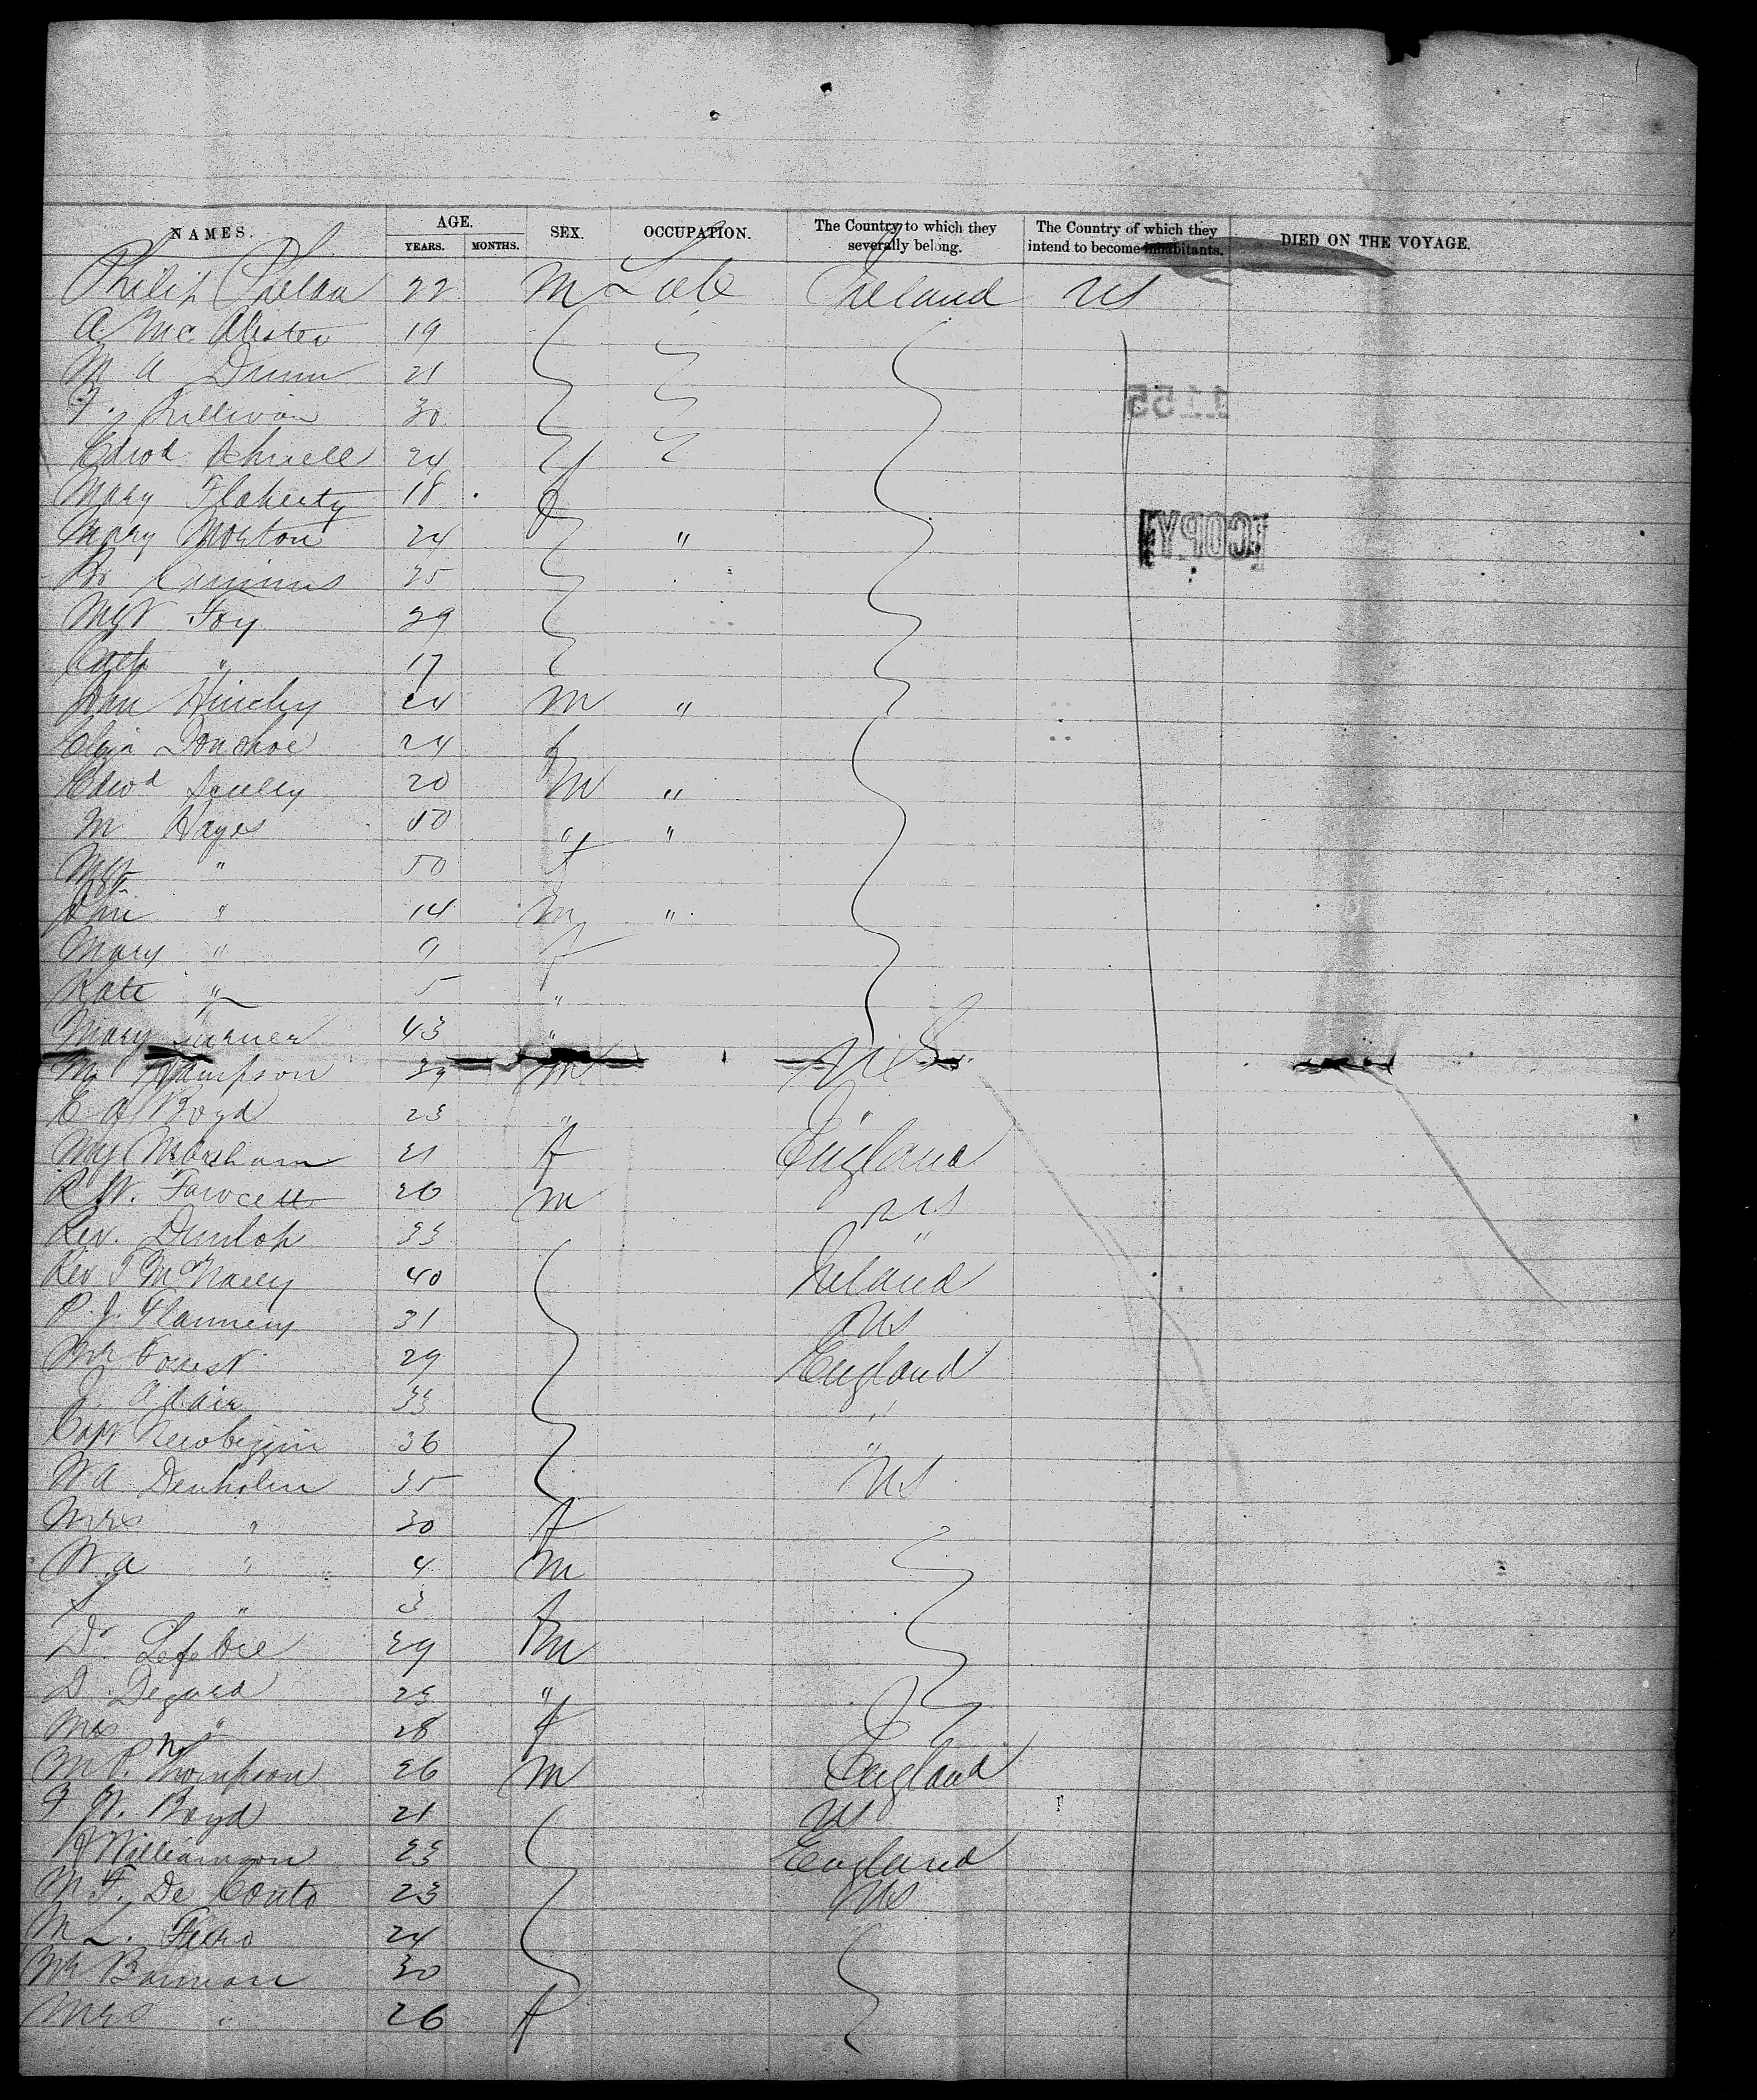 NAMES. AGE. SEX. OCCUPATION. The Country to which they severally belong. The Country of which they intend to become inhabitants. DIED ON THE VOYAGE.
YEARS. MONTHS.
Philip Phelan 22 M Lab Ireland US
A. McAlister 19
M A Dunn 21
F. Sullivan 30
Edwd 24
Mary Flaherty 18 f
Mary Morton 24 "
25
Mgt Foy 29
Cath " 17
John Hinchy 24 M "
Eliza Donohoe 24 f
Edwd Scully 20 M "
M Hayes 50 " "
Mgt " 50 f
John " 14 M "
Mary " 9 f
Kate " 5 "
Mary Turner 43 "
Mr Thompson 39 M U.S.
E A Boyd 23 " "
May Marsham 21 f England
R W. Fawcett 26 M US
Rev. Dunlop 33 "
Rev T McNally 40 Ireland
P. J. Flannery 31 US
Mr Forrest 29 England
J. Adair 33 "
Capt Newbiggin 36 "
W A Denholm 35 US
Mrs " 30 f
W. a " 4 M
" 3 f
Dr Lefebre 29 M
D. Degard 25 "
Mrs " 28 f
M P. Thompson 26 M England
F W. Boyd 21 US
Williamson 23 England
M F. De Couto 23 US
M L. 24
Mr Bannon 30
Mrs " 26 f
1155
COPY